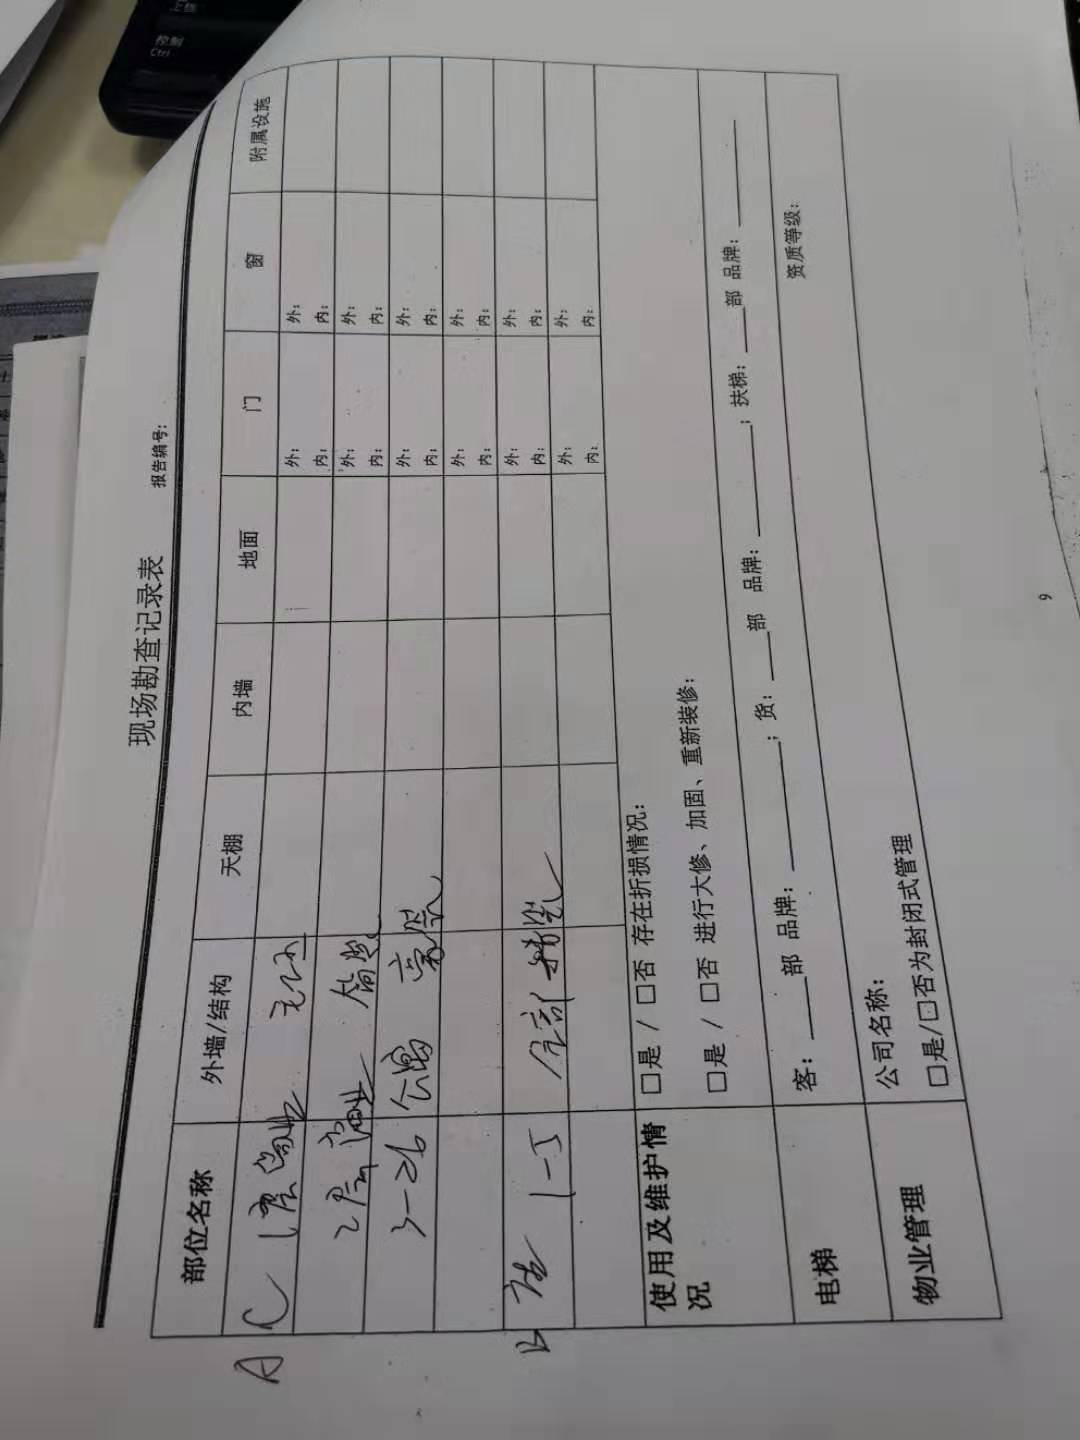 现场勘查记录表
报告编号:
部位名称 外墙/结构 天棚 内墙 地面 门 窗 附属设施
A C 1层商业
外: 外:
内: 内:
2层商业 简装
外: 外:
内: 内:
3-26 公寓
外: 外:
内: 内:
外: 外:
内: 内:
1-5 全部精装
外: 外:
内: 内:
外: 外:
内: 内:
使用及维护情况
□是 / □否 存在折损情况:
□是 / □否 进行大修、加固、重新装修:
电梯
客:____部 品牌:________; 货:____部 品牌:________; 扶梯:____部 品牌:________
物业管理
公司名称: 资质等级:
□是/□否为封闭式管理
9
控制
Ctrl